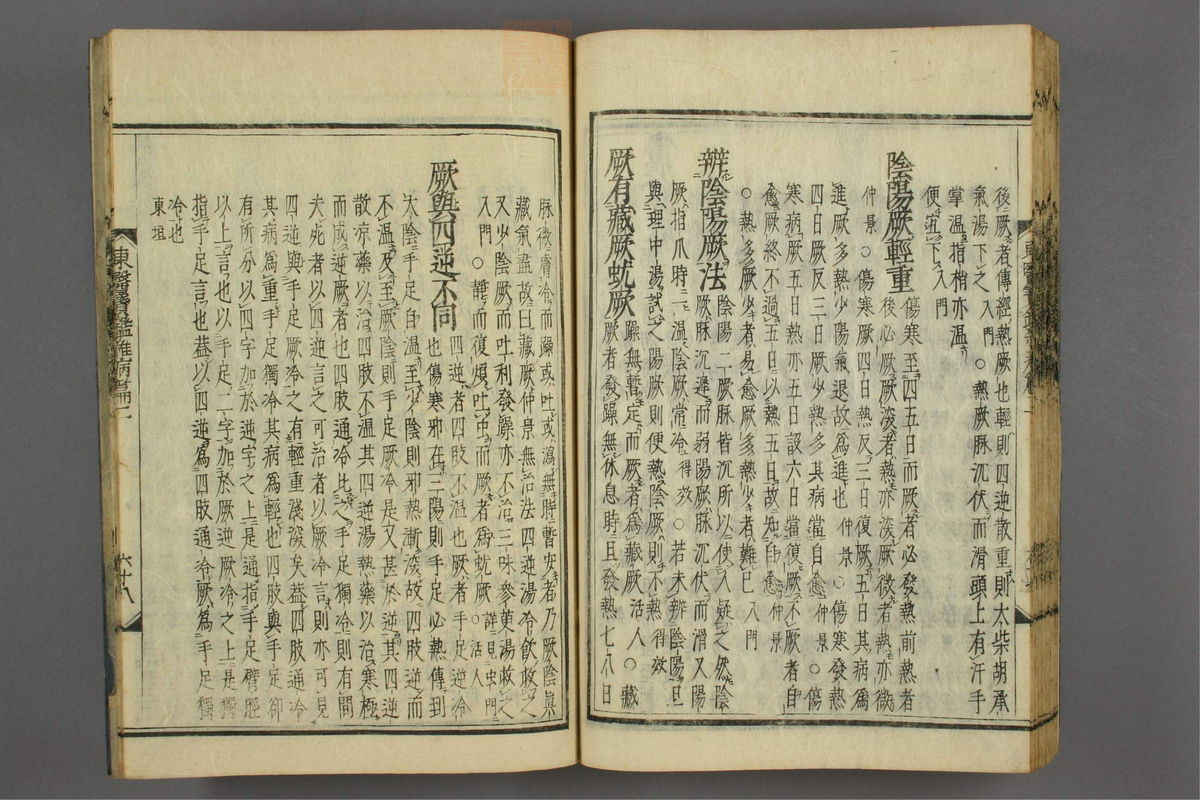 後厥者傳經熱厥也輕則四逆散重則太柴胡承
氣湯下之入門○熱厥脉沉伏而滑頭上有汗手
掌温指梢亦温
便宜下入門
陰陽厥輕重傷寒至四五日而厥者必發熱前熱者
後必厥厥深者熱亦深厥微者熱亦微
仲景○傷寒厥四日熱反三日復厥五日其病爲
進厥多熱少陽氣退故爲進也仲景○傷寒發熱
四日厥反三日厥少熱多其病當自愈仲景○傷
寒病厥五日熱亦五日設六日當復厥不厥者自
愈厥終不過五日以熱五日故知自愈仲景
○熱多厥少者易愈厥多熱少者難已入門
辨陰陽厥法陰陽二厥脉皆沉所以使人疑之然陰
厥脉沉遲而弱陽厥脉沉伏而滑又陽
厥指爪時一温陰厥常冷得效○若未辨陰陽旦
與理中湯試之陽厥則便熱陰厥則不熱得效
厥有藏厥蚘厥躁無暫定而厥者爲藏厥活人○藏
厥者發躁無休息時且發熱七八日
脉微膚冷而躁或吐或瀉無時暫安者乃厥陰眞
藏氣盡故曰藏厥仲景無治法四逆湯冷飲救之
又少陰厥而吐利發躁亦不治三味參萸湯救之
入門○靜而復煩吐虫而厥者爲蚘厥詳見虫門○活人
厥與四逆不同四逆者四肢不温也厥者手足逆冷
也傷寒邪在三陽則手足必熱傳到
太陰手足自温至少陰則邪熱漸深故四肢逆而
不温及至厥陰則手足厥冷是又甚於逆其四逆
散凉藥以治四肢不温其四逆湯熱藥以治寒極
而成逆厥者也四肢通冷比之手足獨冷則有間
夫死者以四逆言之可治者以厥冷言則亦可見
四逆與手足厥冷之有輕重淺深矣盖四肢通冷
其病爲重手足獨冷其病爲輕也四肢與手足卻
有所分以四字加於逆字之上是通指手足臂脛
以上言也以手足二字加於厥逆厥冷之上是獨
指手足言也盖以四逆爲四肢通冷厥爲手足獨
冷也
東垣
東醫寶鑑雜病篇二
六十八